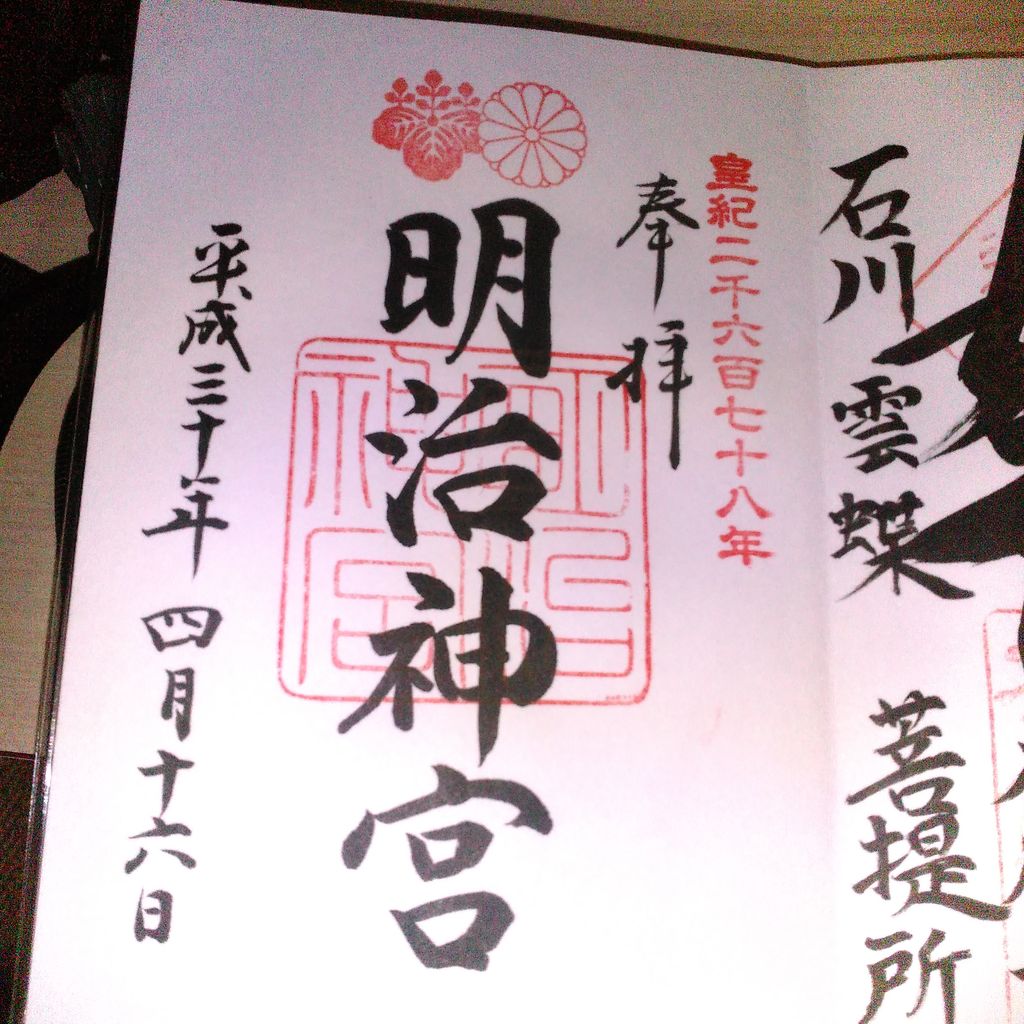 石川雲蝶
菩提所
皇紀二千六百七十八年
奉拝
明治神宮
平成三十年 四月十六日